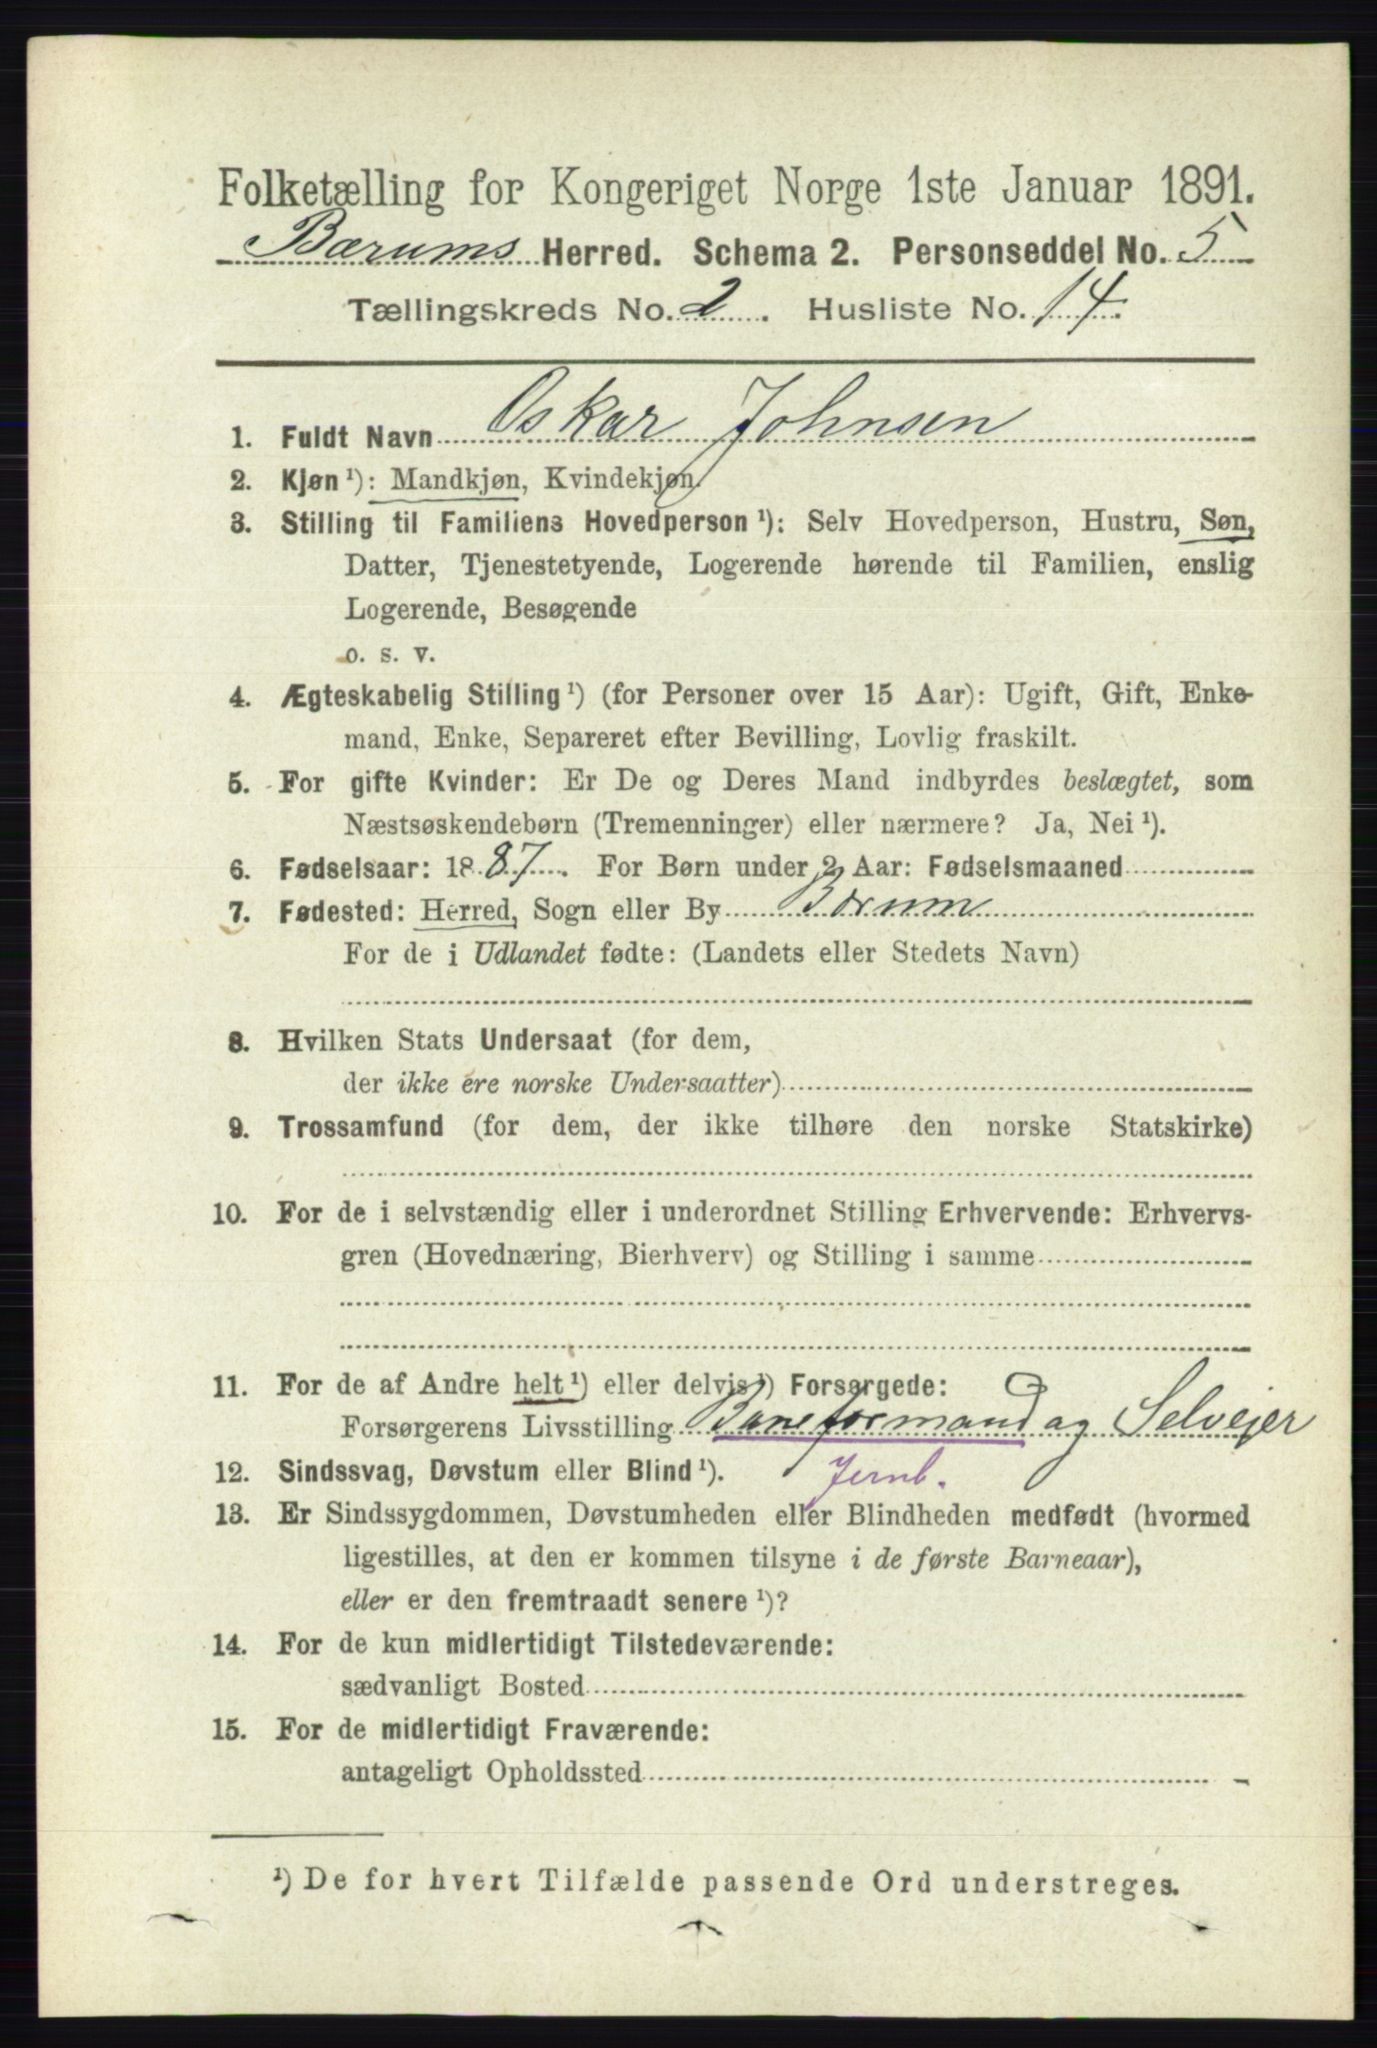 Folketælling for Kongeriget Norge 1ste Januar 1891.
Bærums Herred. Schema 2. Personseddel No. 5
Tællingskreds No. 2. Husliste No. 14.
1. Fuldt Navn Oskar Johnsen
2. Kjøn ¹): Mandkjøn, Kvindekjøn.
3. Stilling til Familiens Hovedperson ¹): Selv Hovedperson, Hustru, Søn,
Datter, Tjenestetyende, Logerende hørende til Familien, enslig
Logerende, Besøgende
o. s. v.
4. Ægteskabelig Stilling ¹) (for Personer over 15 Aar): Ugift, Gift, Enke-
mand, Enke, Separeret efter Bevilling, Lovlig fraskilt.
5. For gifte Kvinder: Er De og Deres Mand indbyrdes beslægtet, som
Næstsøskendebørn (Tremenninger) eller nærmere? Ja, Nei ¹).
6. Fødselsaar: 1887. For Børn under 2 Aar: Fødselsmaaned
7. Fødested: Herred, Sogn eller By Bærum
For de i Udlandet fødte: (Landets eller Stedets Navn)
8. Hvilken Stats Undersaat (for dem,
der ikke ere norske Undersaatter)
9. Trossamfund (for dem, der ikke tilhøre den norske Statskirke)
10. For de i selvstændig eller i underordnet Stilling Erhvervende: Erhvervs-
gren (Hovednæring, Bierhverv) og Stilling i samme
11. For de af Andre helt ¹) eller delvis ¹) Forsørgede:
Forsørgerens Livsstilling Baneformand og Selvejer
12. Sindssvag, Døvstum eller Blind ¹). Jernb.
13. Er Sindssygdommen, Døvstumheden eller Blindheden medfødt (hvormed
ligestilles, at den er kommen tilsyne i de første Barneaar),
eller er den fremtraadt senere ¹)?
14. For de kun midlertidigt Tilstedeværende:
sædvanligt Bosted
15. For de midlertidigt Fraværende:
antageligt Opholdssted
¹) De for hvert Tilfælde passende Ord understreges.